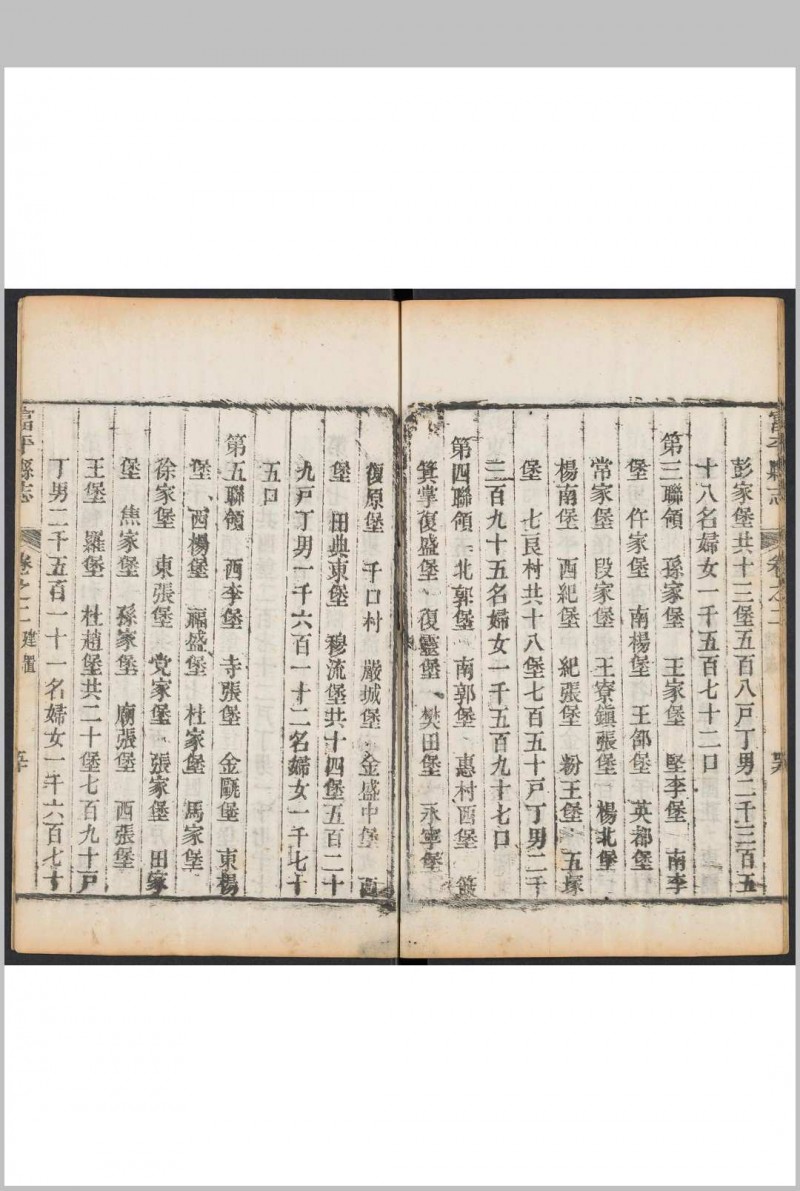 富平縣志 卷之二
彭家堡共十三堡五百八戸丁男二千三百五
十八名婦女一千五百七十二口
第三聯領 孫家堡 王家堡 堅李堡 南李
堡 仵家堡 南楊堡 王郃堡 英都堡
常家堡 段家堡 王寮鎮張堡 楊北堡
楊南堡 西紀堡 紀張堡 粉王堡 五塚
堡 七良村共十八堡七百五十戸丁男二千
三百九十五名婦女一千五百九十七口
第四聯領 北郭堡 南郭堡 惠村西堡
箕掌復盛堡 復靈堡 樊田堡 永寧堡
復原堡 千口村 嚴城堡 金盛中堡 西
堡 田典東堡 穆流堡共十四堡五百二十
九戸丁男一千六百一十二名婦女一千七十
五口
第五聯領 西李堡 寺張堡 金甌堡 東楊
堡 西楊堡 福盛堡 杜家堡 馬家堡
徐家堡 東張堡 党家堡 張家堡 田家
堡 焦家堡 孫家堡 廟張堡 西張堡
王堡 羅堡 杜趙堡共二十堡七百九十戸
丁男二千五百一十一名婦女一千六百七十
富平縣志 卷之二 建置 五十